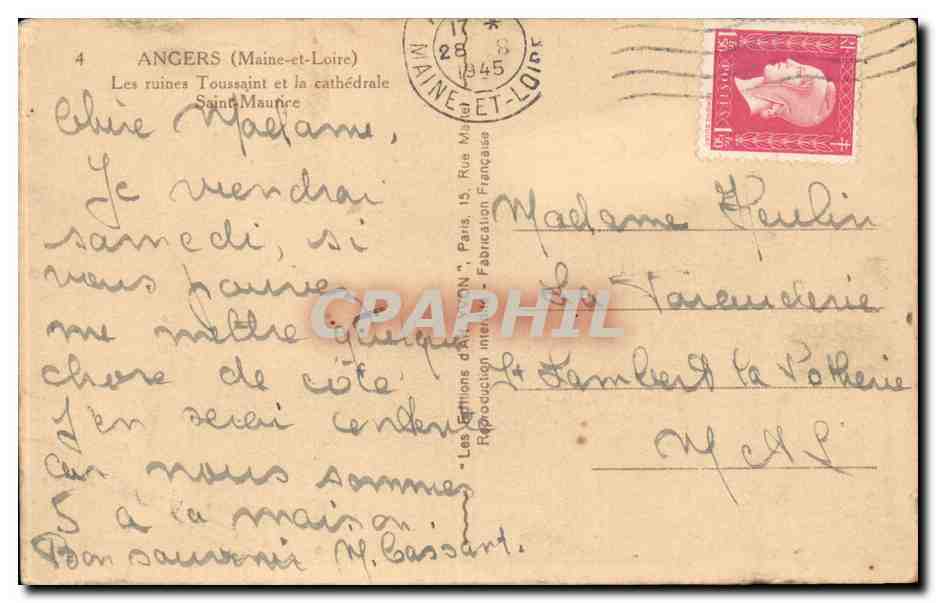 4 ANGERS (Maine-et-Loire)
Les ruines Toussaint et la cathédrale
Saint-Maurice
Chère Madame,
Je viendrai
samedi, si
vous pouvez
me mettre quelque
chose de côté
J'en serai contente
car nous sommes
5 à la maison.
Bon souvenir M. Cassant.
17 *
28
1945
MAINE-ET-LOIRE
"Les Editions d'Art YVON", Paris, 15, Rue Martel
Reproduction interdite - Fabrication Française
POSTES
1F50
1F50
CPAPHIL
Madame Heulin
La
St Lambert la Potherie
M & L